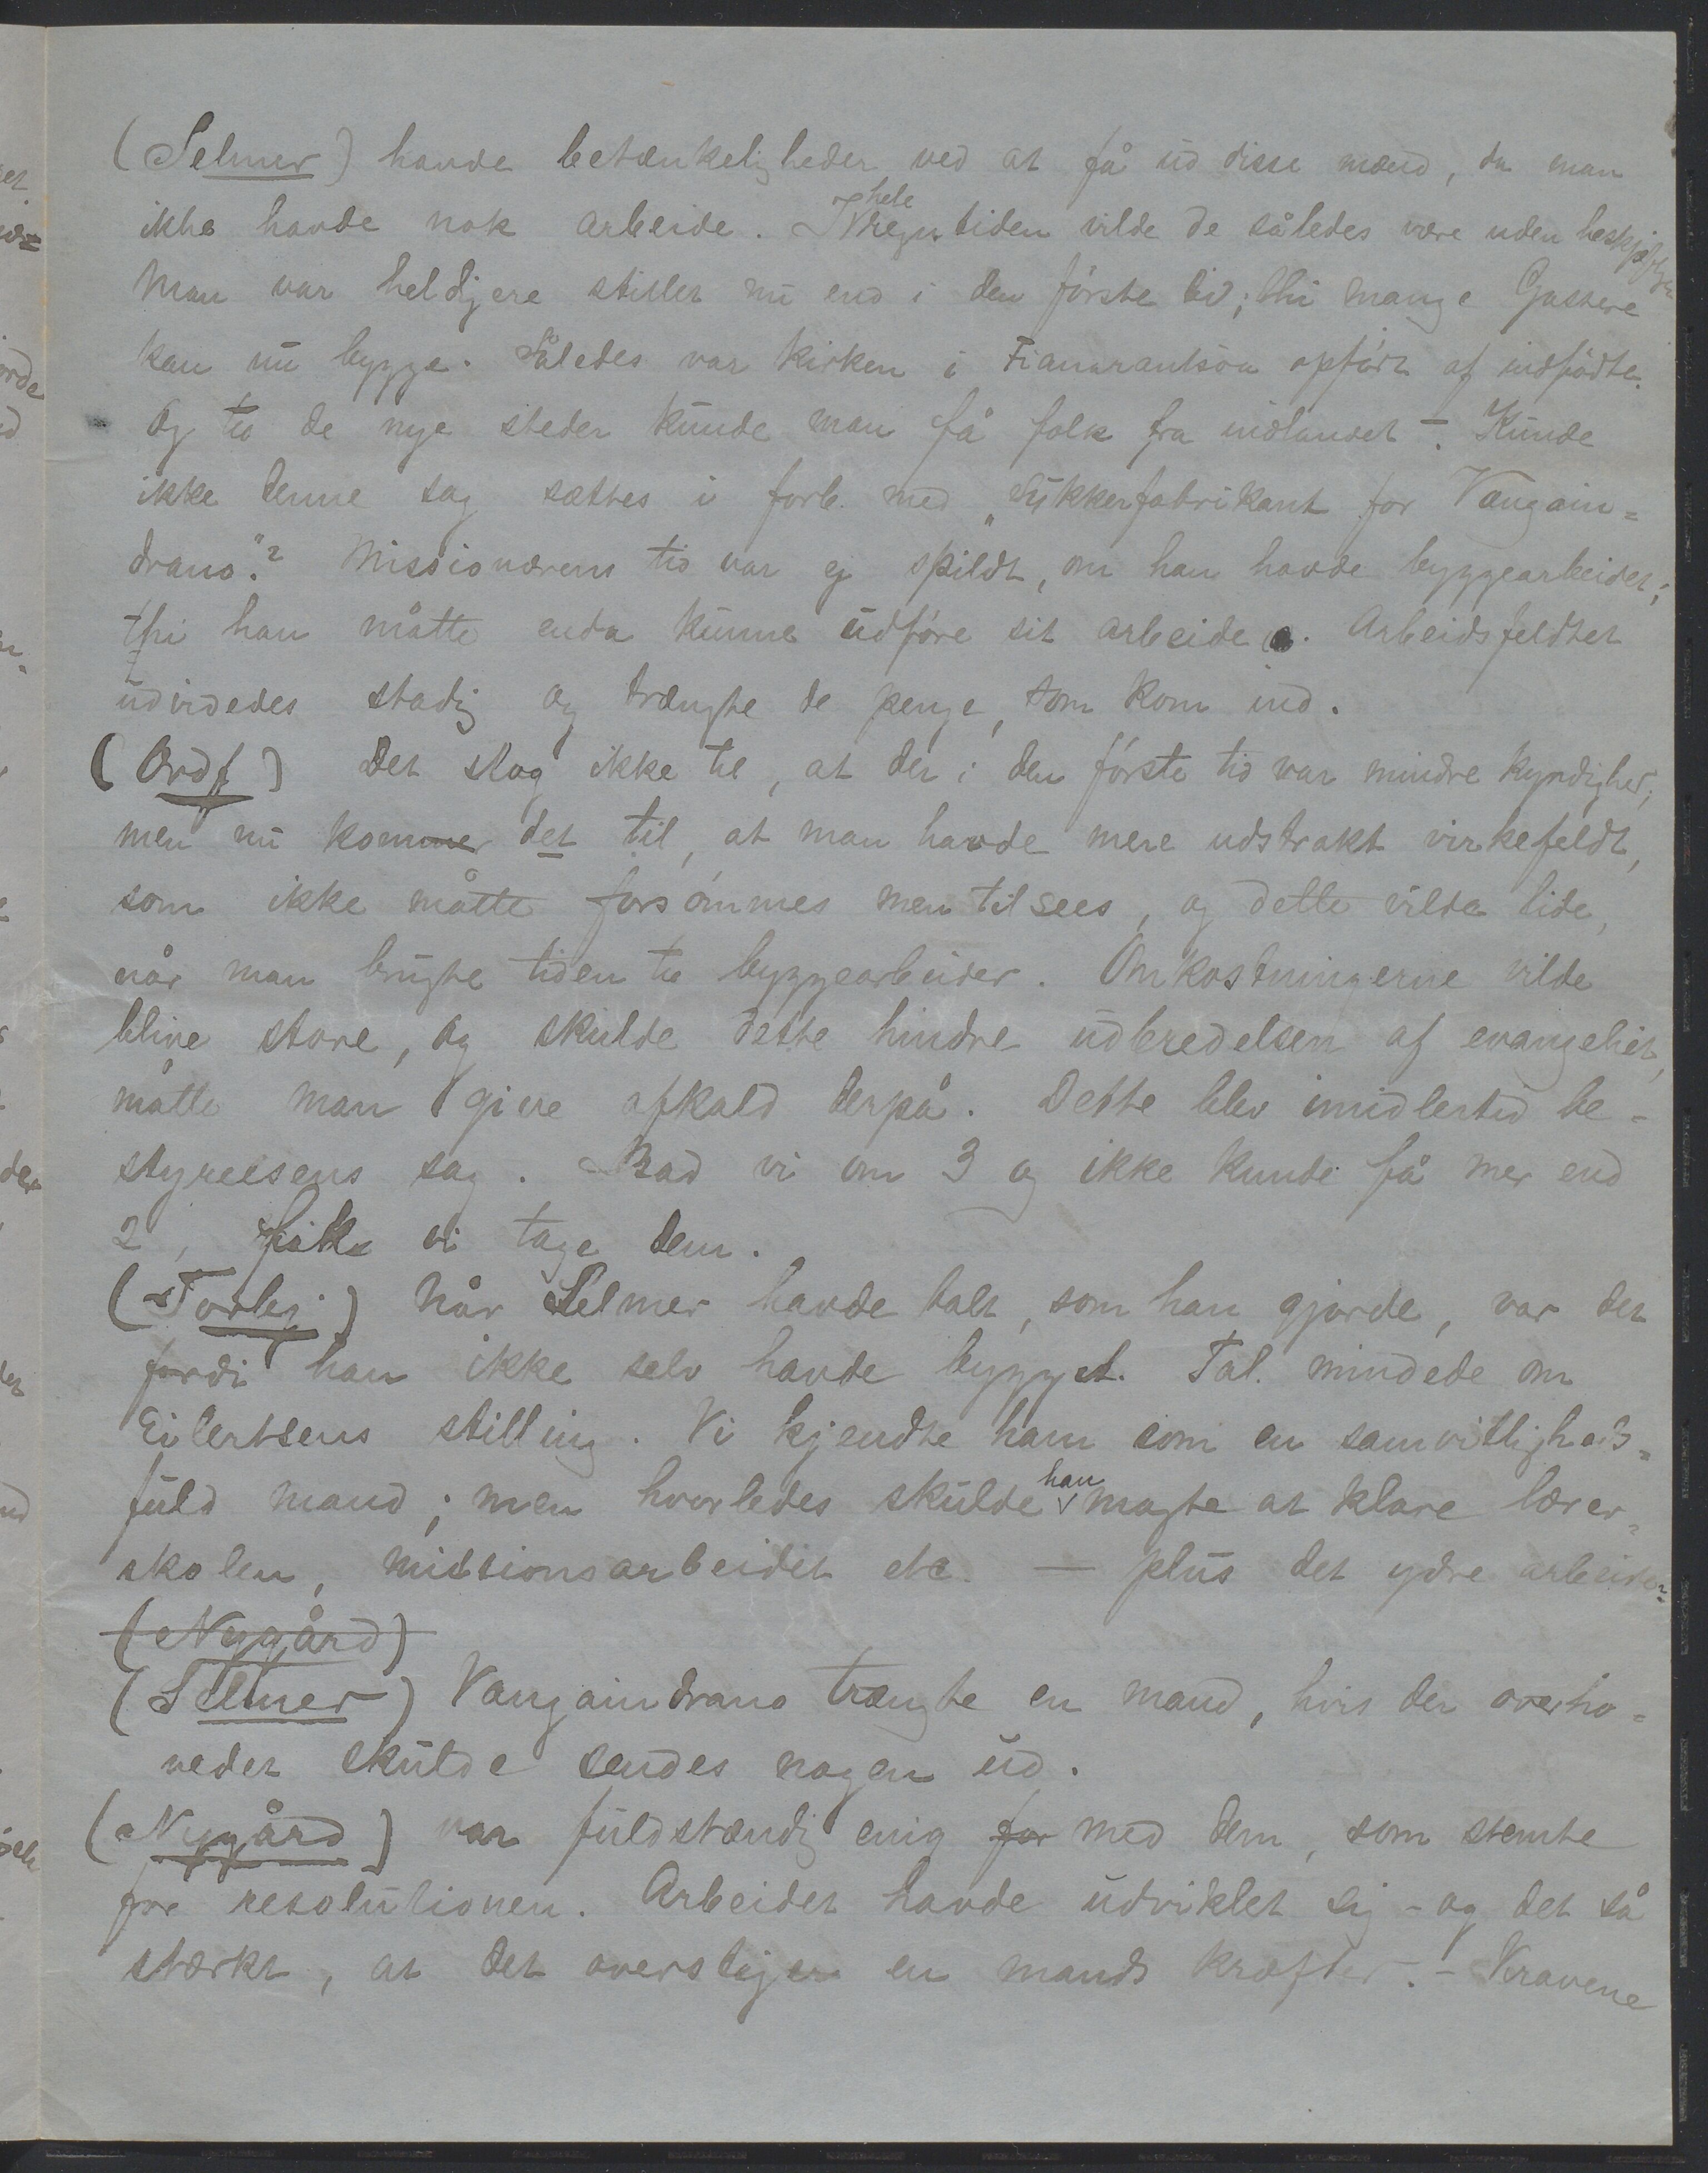 (Selmer) havde betænkeligheder ved at få ud disse mænd, da man
ikke havde nok arbeide. I hele regntiden vilde de således være uden beskjæftigen
Man var heldigere stillet nu end i den første tid; thi mange Gassere
kan nu bygge. Således var kirken i Fianarantsoa opført af indfødte.
Og til de nye steder kunde man få folk fra indlandet –. Kunde
ikke denne sag sættes i forb. med „Sukkerfabrikant for Vangain=
drano“? Missionærens tid var ej spildt, om han havde byggearbeidet;
thi han måtte enda kunne udføre sit arbeide. Arbeidsfeldtet
udvidedes stadig og trængte de penge, som kom ind.
(Ordf) Det slog ikke til, at der i den første tid var mindre kyndighed;
men nu kommer det til, at man havde mere udstrakt virkefeldt,
som ikke måtte forsømmes men tilsees, og dette vilde lide,
når man brugte tiden til byggearbeider. Omkostningerne vilde
blive store, og skulde dette hindre udbredelsen af evangeliet,
måtte man give afkald derpå. Dette blev imidlertid be-
styrelsens sag. Bad vi om 3 og ikke kunde få mer end
2, fik vi tage dem.
(Torbj) Når Selmer havde talt, som han gjorde, var det
fordi han ikke selv havde bygget. Tal. mindede om
Eilertsens stilling. Vi kjendte ham som en samvittigheds=
fuld mand; men hvorledes skulde han magte at klare lærer=
skolen, missionsarbeidet etc. — plus det ydre arbeide?
(Nygård)
(Selmer) Vangaindrano trængte en mand, hvis der overho=
vedet skulde sendes nogen ud.
(Nygård) var fuldstændig enig for med dem, som stemte
for resolutionen. Arbeidet havde udviklet sig – og det så
stærkt, at det overstiger en mands kræfter. – Kravene